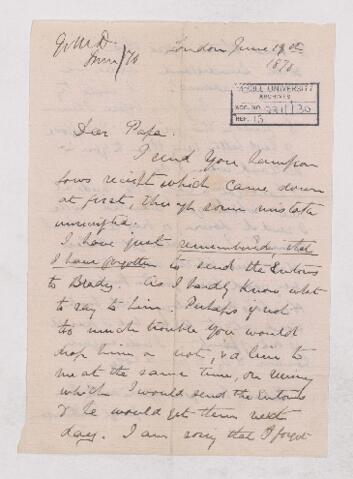 G.M.D
June/70
London June 19th
1870
McGILL UNIVERSITY
ARCHIVES
ACC. NO.
REF.
Dear Papa.
I send you
receipt which came down
at first, through some mistake
I have just remembered, that
I have forgotten to send the
to Brady. As I hardly know what
to say to him. Perhaps if not
to much trouble you would
drop him a not, & him to
me at the same time, on
which I would send the
& he would get them next
day. I am sorry that I forgot